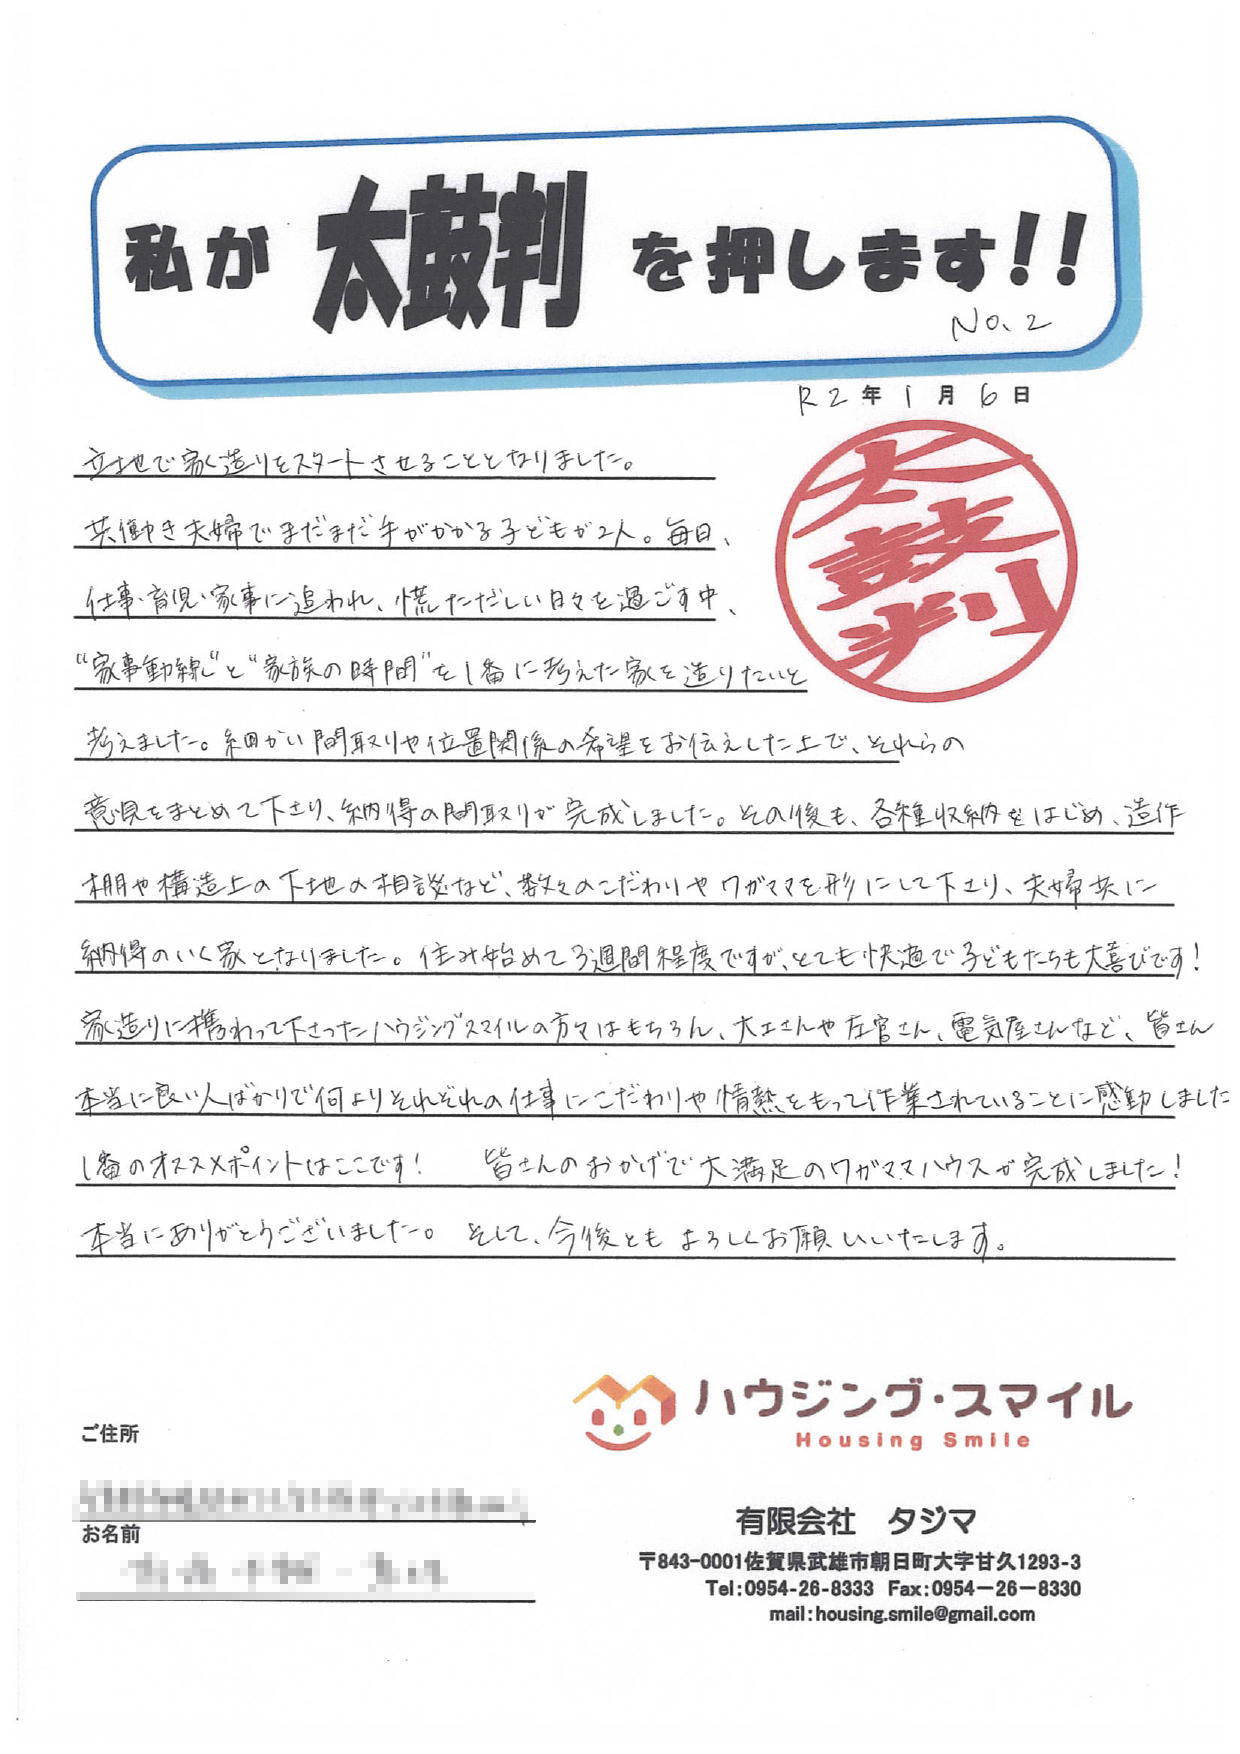 私が 太鼓判 を押します!!
No.2
R2年1月6日
太鼓判
立地で家造りをスタートさせることとなりました。
共働き夫婦でまだまだ手がかかる子どもが2人。毎日、
仕事・育児・家事に追われ、慌ただしい日々を過ごす中、
“家事動線”と“家族の時間”を1番に考えた家を造りたいと
考えました。細かい間取りや位置関係の希望をお伝えした上で、それらの
意見をまとめて下さり、納得の間取りが完成しました。その後も、各種収納をはじめ、造作
棚や構造上の下地の相談など、数々のこだわりやワガママを形にして下さり、夫婦共に
納得のいく家となりました。住み始めて3週間程度ですが、とても快適で子どもたちも大喜びです!
家造りに携わって下さったハウジングスマイルの方々はもちろん、大工さんや左官さん、電気屋さんなど、皆さん
本当に良い人ばかりで何よりそれぞれの仕事にこだわりや情熱をもって作業されていることに感動しました
1番のオススメポイントはここです! 皆さんのおかげで大満足のワガママハウスが完成しました!
本当にありがとうございました。 そして、今後ともよろしくお願いいたします。
ハウジング・スマイル
Housing Smile
ご住所
お名前
有限会社 タジマ
〒843-0001佐賀県武雄市朝日町大字甘久1293-3
Tel:0954-26-8333 Fax:0954-26-8330
mail:housing.smile@gmail.com